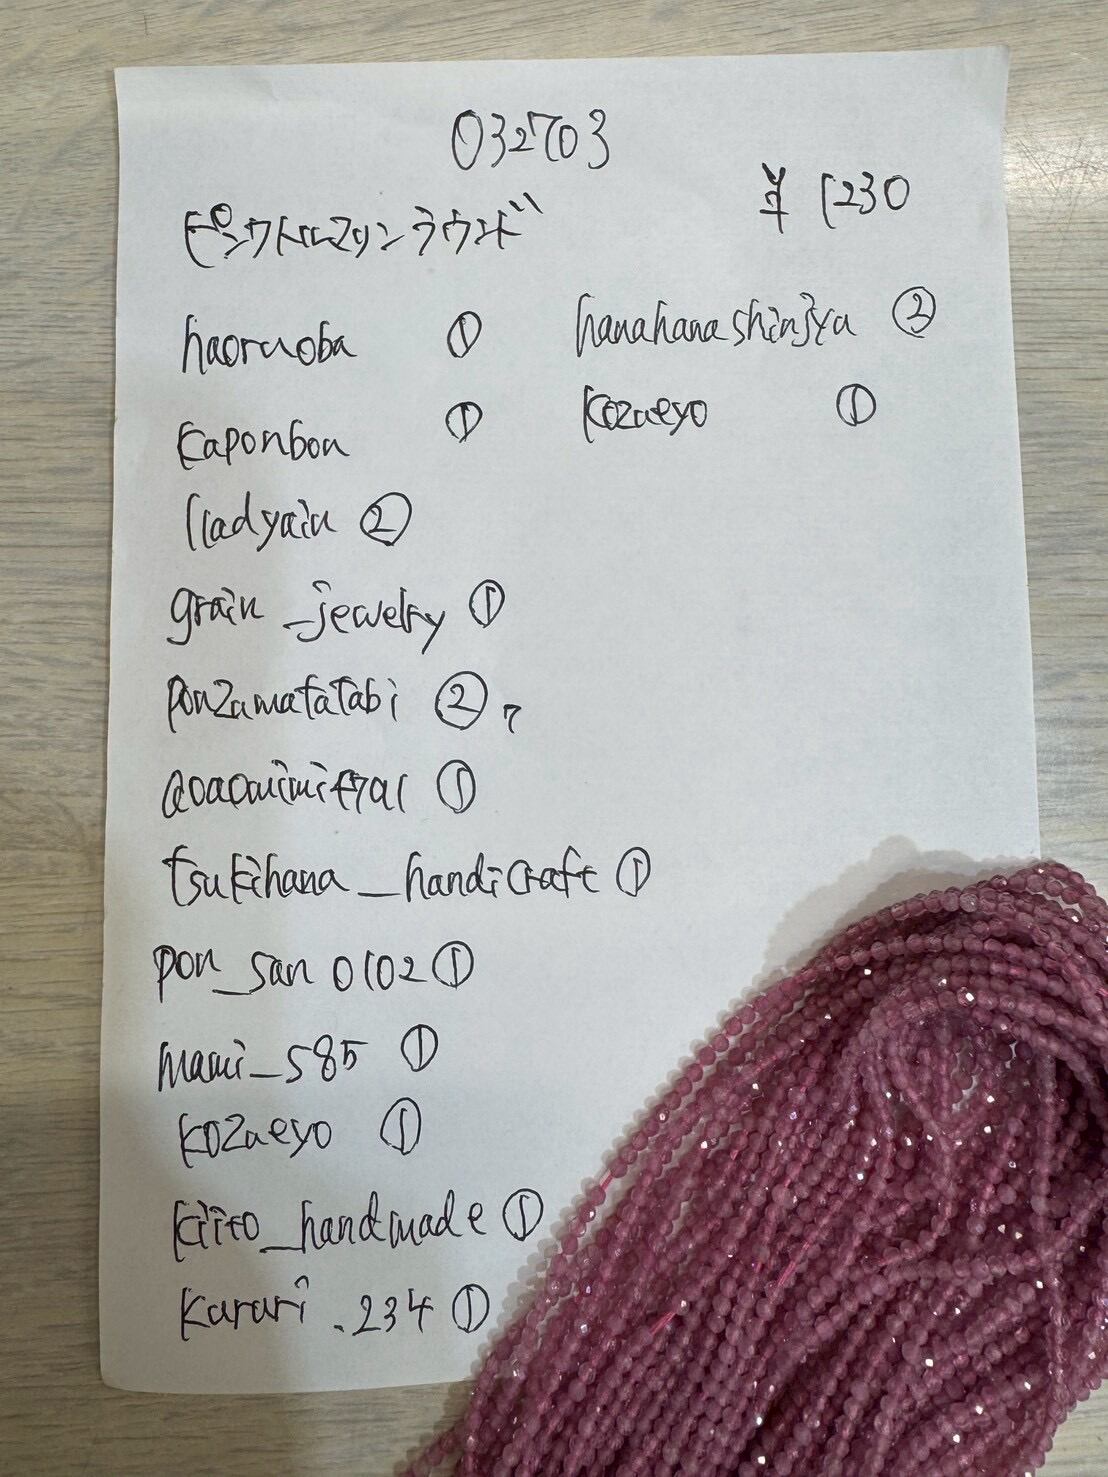 032703
¥ 1230
ピンクトルマリンラウンド
haoruoba ①
kaponbon ①
lladyaiu ②
grain_jewelry ①
ponzamatatabi ② 7
①
tsukihana_handicraft ①
pon_san 0102 ①
mami_585 ①
kozaeyo ①
kiito_handmade ①
karari.234 ①
hanahanashinjyu ②
kozaeyo ①